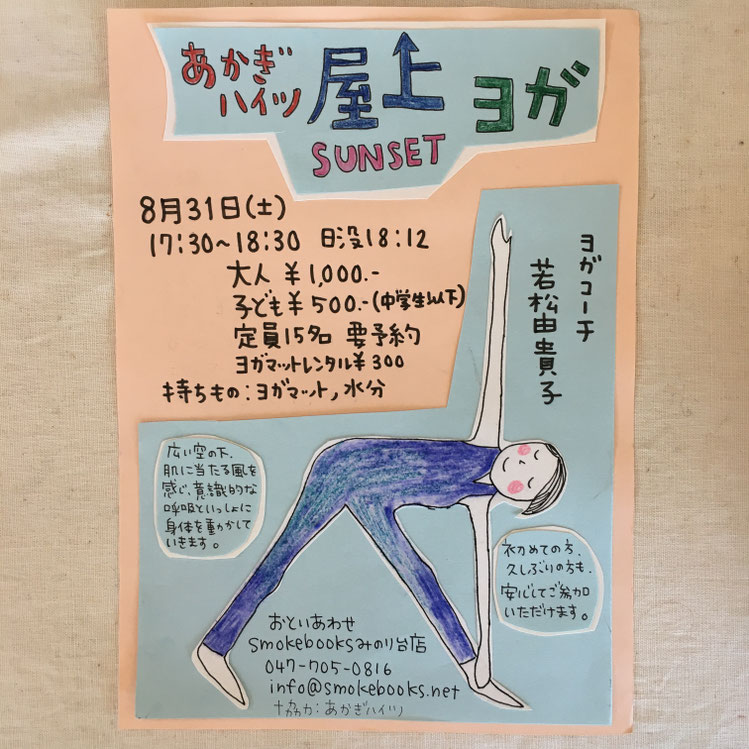 あかぎ
ハイツ
屋上ヨガ
SUNSET
8月31日(土)
17:30〜18:30 日没18:12
大人 ¥1,000.-
子ども¥500.-(中学生以下)
定員15名 要予約
ヨガマットレンタル¥300
持ちもの:ヨガマット,水分
ヨガコーチ
若松由貴子
広い空の下、
肌に当たる風を
感じ、意識的な
呼吸といっしょに
身体を動かして
いきます。
初めての方、
久しぶりの方も、
安心してご参加
いただけます。
おといあわせ
smokebooksみのり台店
047-705-0816
info@smokebooks.net
協力:あかぎハイツ